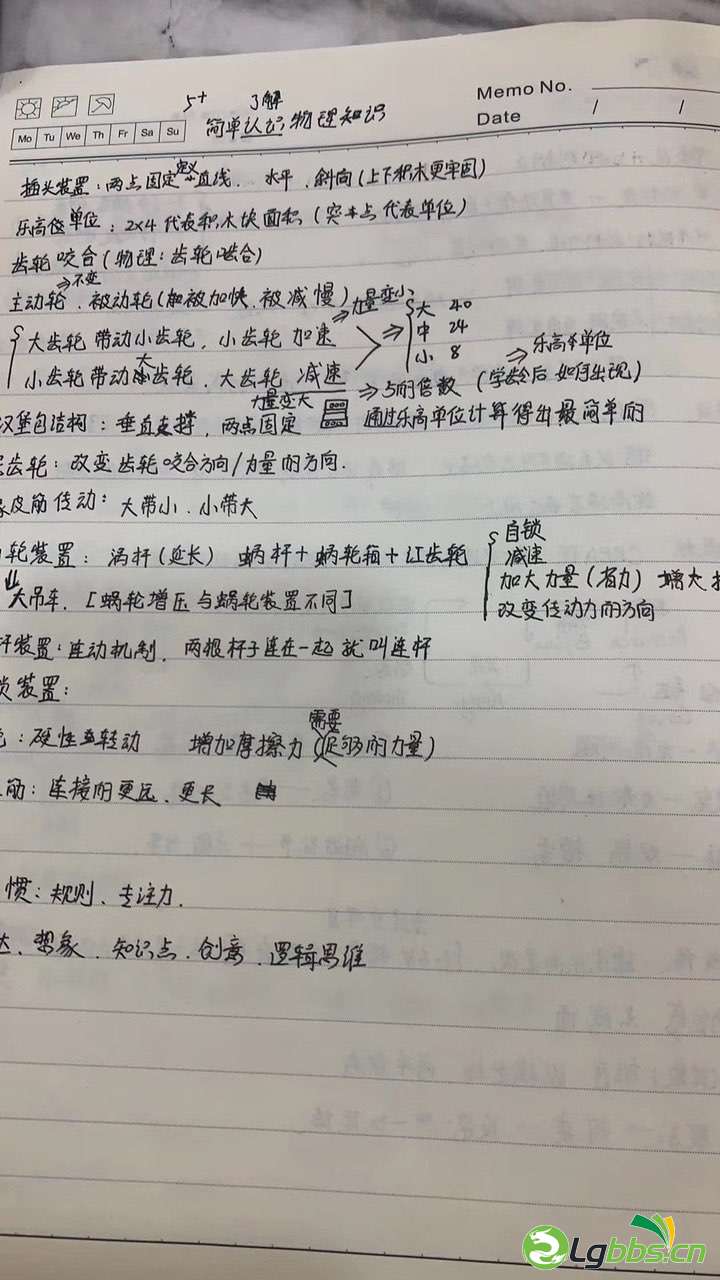 Memo No.
Date / /
Mo Tu We Th Fr Sa Su
5+ 了解
简单认识物理知识
插头装置：两点固定定义一直线．水平．斜向(上下积木更牢固)
乐高单位：2x4代表积木块面积(突点代表单位)
齿轮咬合(物理：齿轮啮合)
⇒不变
主动轮．被动轮(加被加快．被减慢)⇒力量变小
大齿轮带动小齿轮，小齿轮加速
小齿轮带动大齿轮．大齿轮减速
⇒ 大 40
中 24
小 8
⇒乐高单位
力量变大
⇒5的倍数(学龄后如何出现)
汉堡包结构：垂直支撑，两点固定 通过乐高单位计算得出最简单的
齿轮：改变齿轮咬合方向/力量的方向．
皮筋传动：大带小．小带大
轮装置：涡杆(延长) 蜗杆+蜗轮箱+齿轮
自锁
减速
加大力量(省力)
改变传动力的方向
大吊车．[蜗轮增压与蜗轮装置不同]
杆装置：连动机制，两根杆子连在一起就叫连杆
装置：
：硬性转动 增加摩擦力(需要足够的力量)
筋：连接的更远．更长
惯：规则．专注力．
达．想象．知识点．创意．逻辑思维
Lgbbs.cn